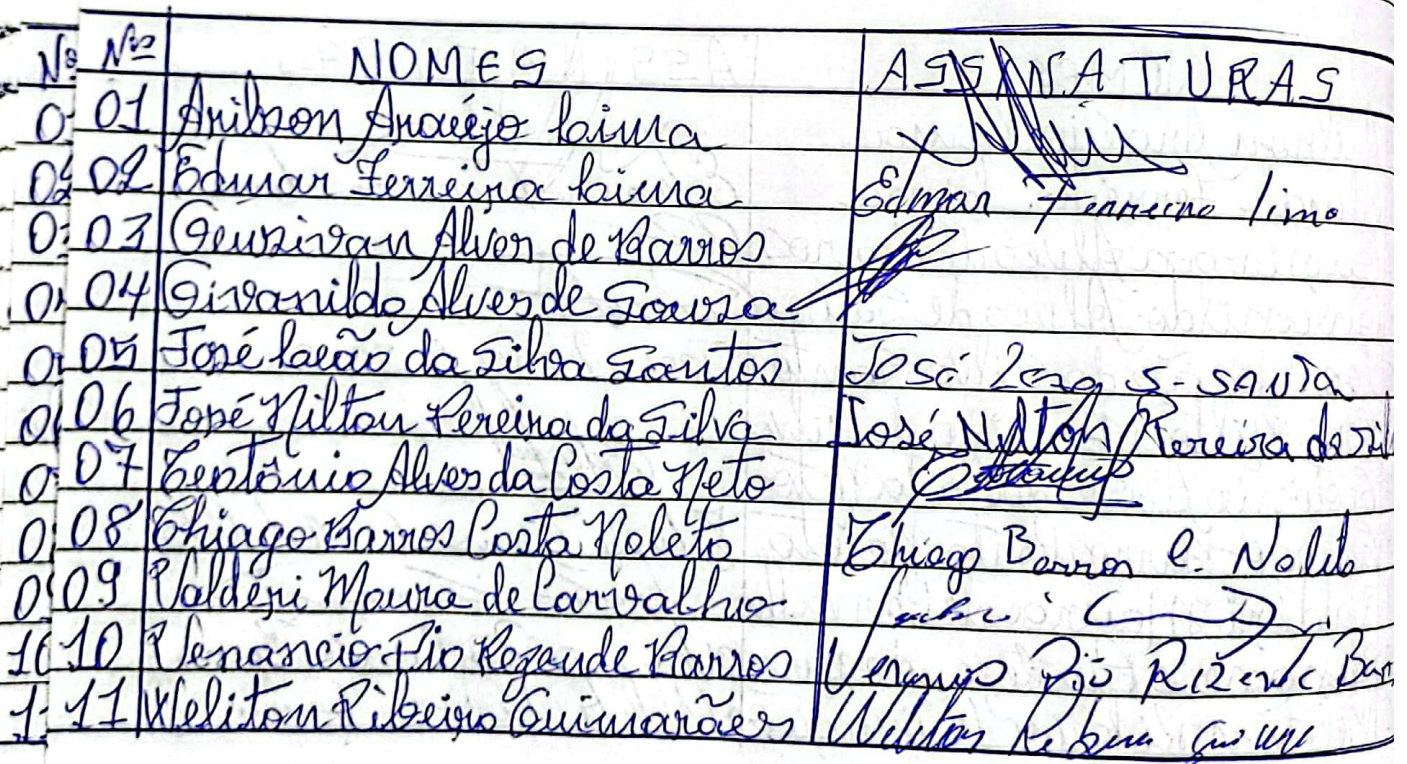 Nº Nºs NOMES ASSINATURAS
0 01 Arilson Araújo Lima
02 02 Edmar Ferreira Lima Edmar Ferreira Lima
03 03 Geuzivan Alves de Barros
0 04 Givanildo Alves de Souza
0 05 José Leão da Silva Santos José S. Santa
0 06 José Nilton Pereira da Silva José Nylton Pereira da Sil
0 07 Teotônio Alves da Costa Neto
0 08 Thiago Barros Costa Noleto Thiago Barros C. Noleto
0 09 Valdeni Moura de Carvalho
10 10 Venancio Pio Rezende Barros Pio Rezende Bar
1 11 Weliton Ribeiro Guimarães Weliton Ribeiro